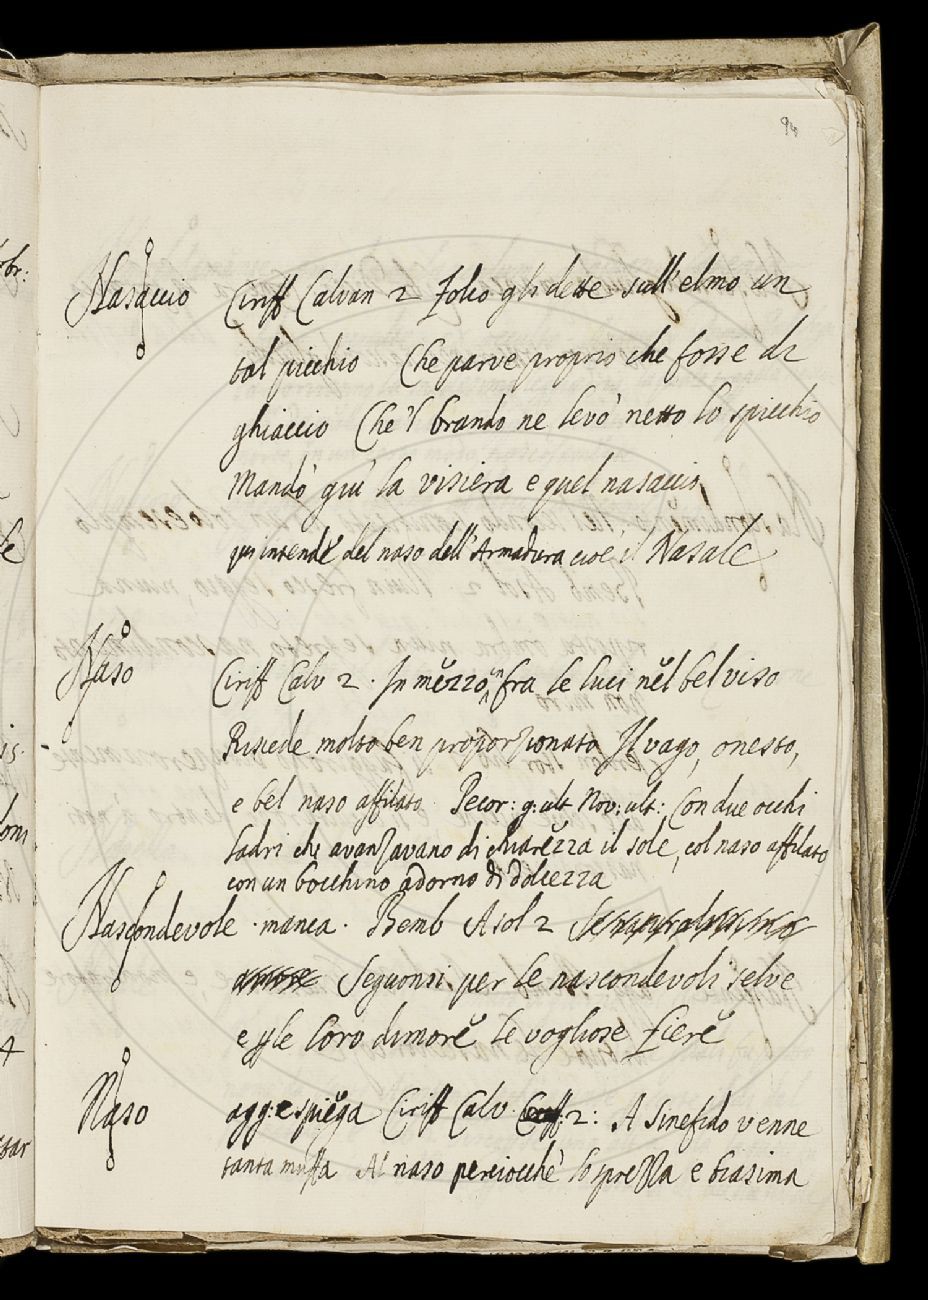 Nasaccio Ciriff Calvan 2 Folco gli dette sull'elmo un
tal picchio Che parve proprio che fosse di
ghiaccio Che'l brando ne levò netto lo spicchio
Mandò giù la visiera e quel nasaccio
qui intende del naso dell'Armadura cioè il Nasale
Naso Ciriff Calv 2. In mezzo infra le luci nel bel viso
Risiede molto ben proporzionato Il vago, onesto,
e bel naso affilato Pecor: g: ult Nov: ult: Con due occhi
ladri che avanzavano di chiarezza il sole, col naso affilato
con un bocchino adorno di dolcezza
Nascondevole . manca . Bemb Asol 2
Seguonsi per le nascondevoli selve
e per le loro dimore le vogliose fiere
Naso agg: e spiega Ciriff Calv 2: A Sinefido venne
tanta muffa Al naso perciocchè lo sprezza e biasima